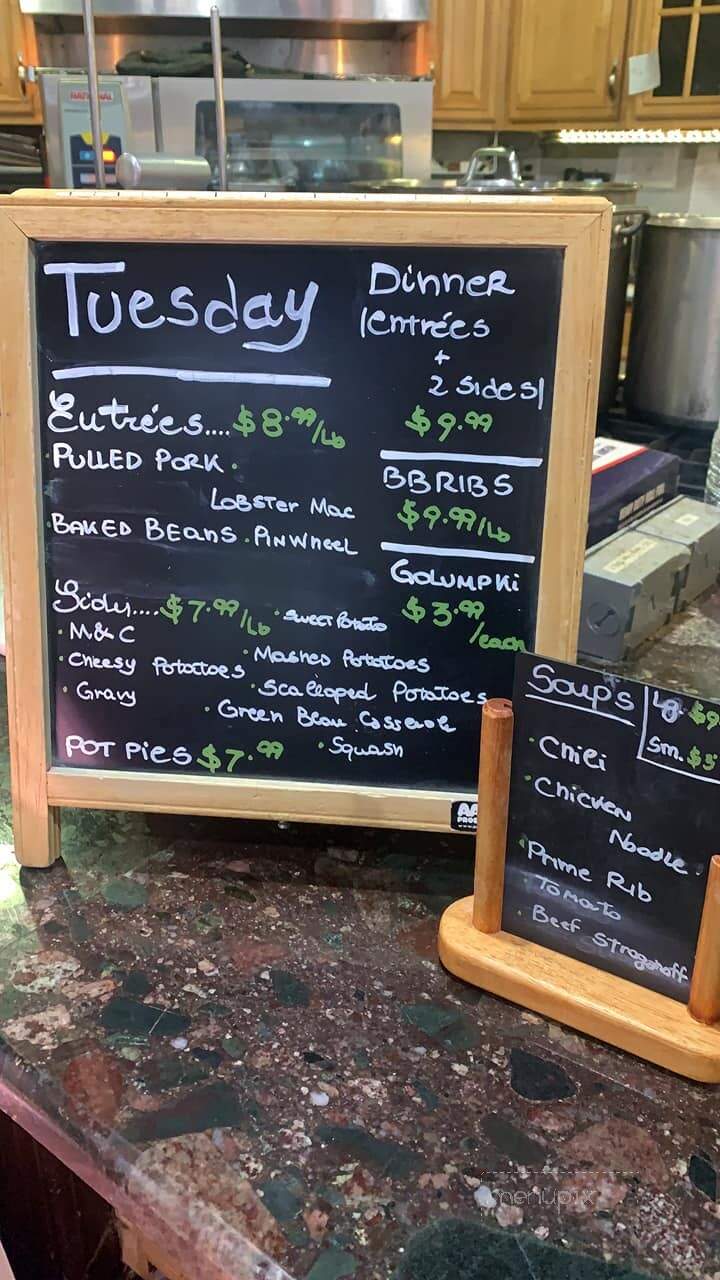 NATIONAL
Tuesday
Entrées.... $8.99/Lb
• PULLED PORK •
LOBSTER MAC
• BAKED BEANS • PINWHEEL
Sides.... $7.99/Lb
• SWEET POTATO
• M&C
• Mashed Potatoes
• Cheesy Potatoes
• Scalloped Potatoes
• Gravy
• Green Bean Casserole
• Squash
POT PIES $7.99
DINNER
(entrées
+
2 sides)
$9.99
BBRIBS
$9.99/Lb
GOLUMPKI
$3.99
/each
Soup's
Lg. $9
Sm. $5
• Chili
• Chicken
Noodle •
• Prime Rib
• Tomato
• Beef Stroganoff
menupix